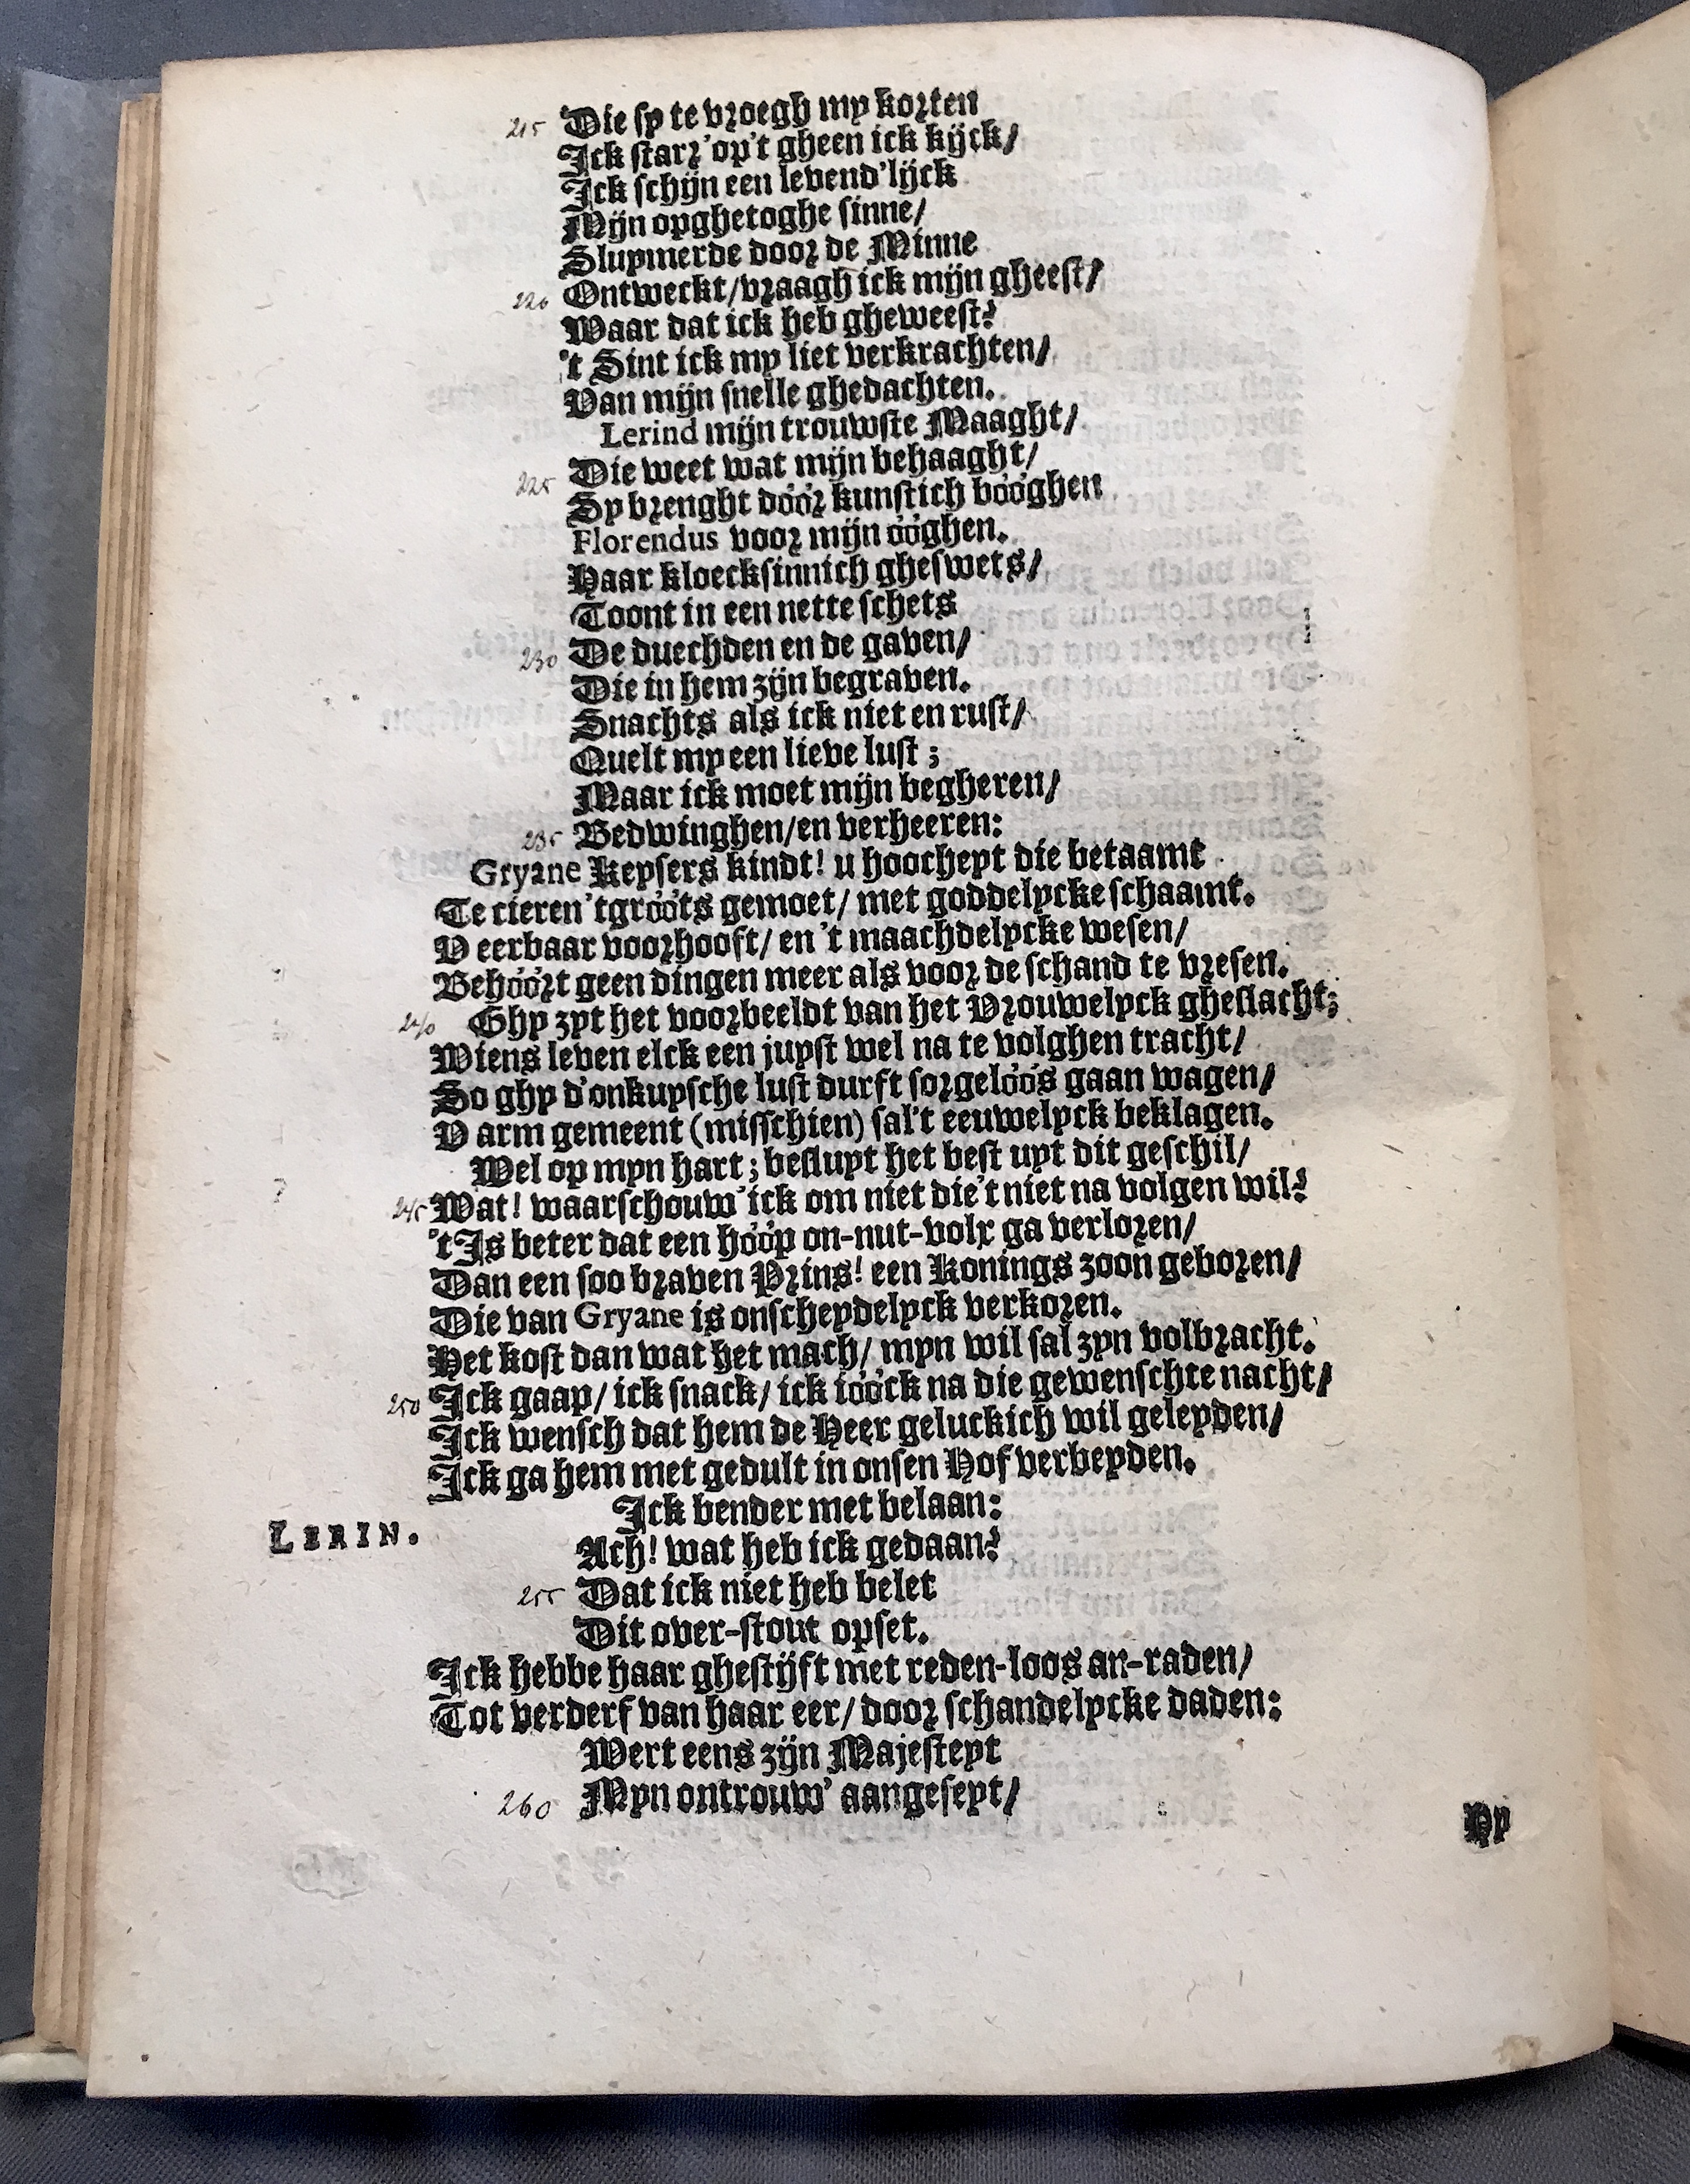 215 Die sy te vroegh my korten
Ick starr'op't gheen ick kijck/
Ick schijn een levend'lijck
Mijn opghetoghe sinne/
Sluymerde door de Minne
220 Ontweckt/vraagh ick mijn gheest/
Waar dat ick heb gheweest?
't Sint ick my liet verkrachten/
Van mijn snelle ghedachten.
Lerind mijn trouwste Maaght/
225 Die weet wat mijn behaaght/
Sy brenght dóór kunstich bóóghen
Florendus voor mijn óóghen.
Haar kloecksinnich gheswets/
Toont in een nette schets
230 De duechden en de gaven/
Die in hem zijn begraven.
Snachts als ick niet en rust/
Quelt my een lieve lust ;
Maar ick moet mijn begheren/
235 Bedwinghen/en verheeren:
Gryane Keysers kindt! u hoocheyt die betaamt
Te cieren 'tgróóts gemoet/ met goddelycke schaamt.
V eerbaar voorhooft/ en 't maachdelycke wesen/
Behóórt geen dingen meer als voor de schand te vresen.
240 Ghy zyt het voorbeeldt van het Vrouwelyck gheslacht;
Wiens leven elck een juyst wel na te volghen tracht/
So ghy d'onkuysche lust durft sorgelóós gaan wagen/
V arm gemeent (misschien) sal't eeuwelyck beklagen.
Wel op myn hart ; besluyt het best uyt dit geschil/
245 Wat! waarschouw'ick om niet die't niet na volgen wil?
't Is beter dat een hóóp on-nut-volx ga verloren/
Dan een soo braven Prins! een Konings zoon geboren/
Die van Gryane is onscheydelyck verkoren.
Het kost dan wat het mach/ myn wil sal zyn volbracht.
250 Ick gaap/ ick snack/ ick ióóck na die gewenschte nacht/
Ick wensch dat hem de Heer geluckich wil geleyden/
Ick ga hem met gedult in onsen Hof verbeyden.
Ick bender met belaan:
LERIN.
Ach! wat heb ick gedaan?
255 Dat ick niet heb belet
Dit over-stout opset.
Ick hebbe haar ghestijft met reden-loos an-raden/
Tot verderf van haar eer/ door schandelycke daden:
Wert eens zijn Majesteyt
260 Myn ontrouw' aangeseyt/
Hy